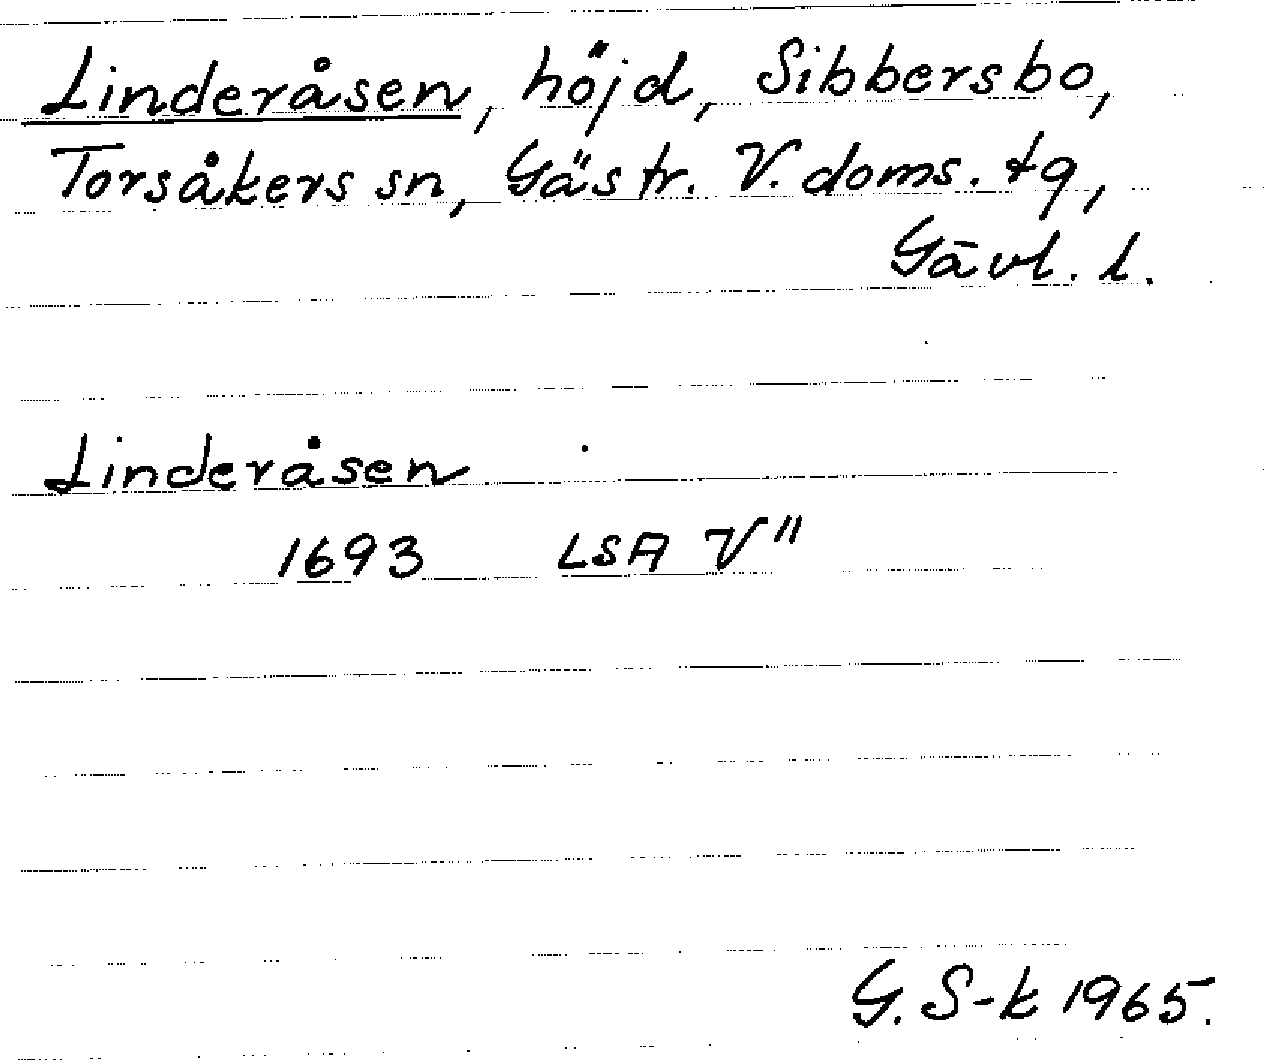 Linderåsen, höjd, Sibbersbo,
Torsåkers sn, Gästr. V. doms. tg,
Gävl. l.
Linderåsen
1693 LSA V"
G. S-k 1965.